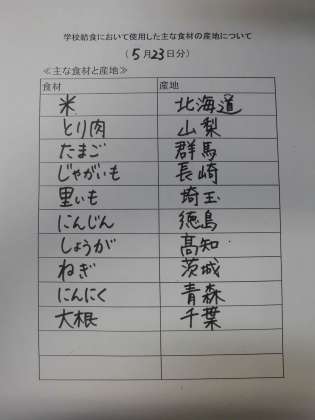 学校給食において使用した主な食材の産地について
（5月23日分）
≪主な食材と産地≫
食材 産地
米 北海道
とり肉 山梨
たまご 群馬
じゃがいも 長崎
里いも 埼玉
にんじん 徳島
しょうが 高知
ねぎ 茨城
にんにく 青森
大根 千葉